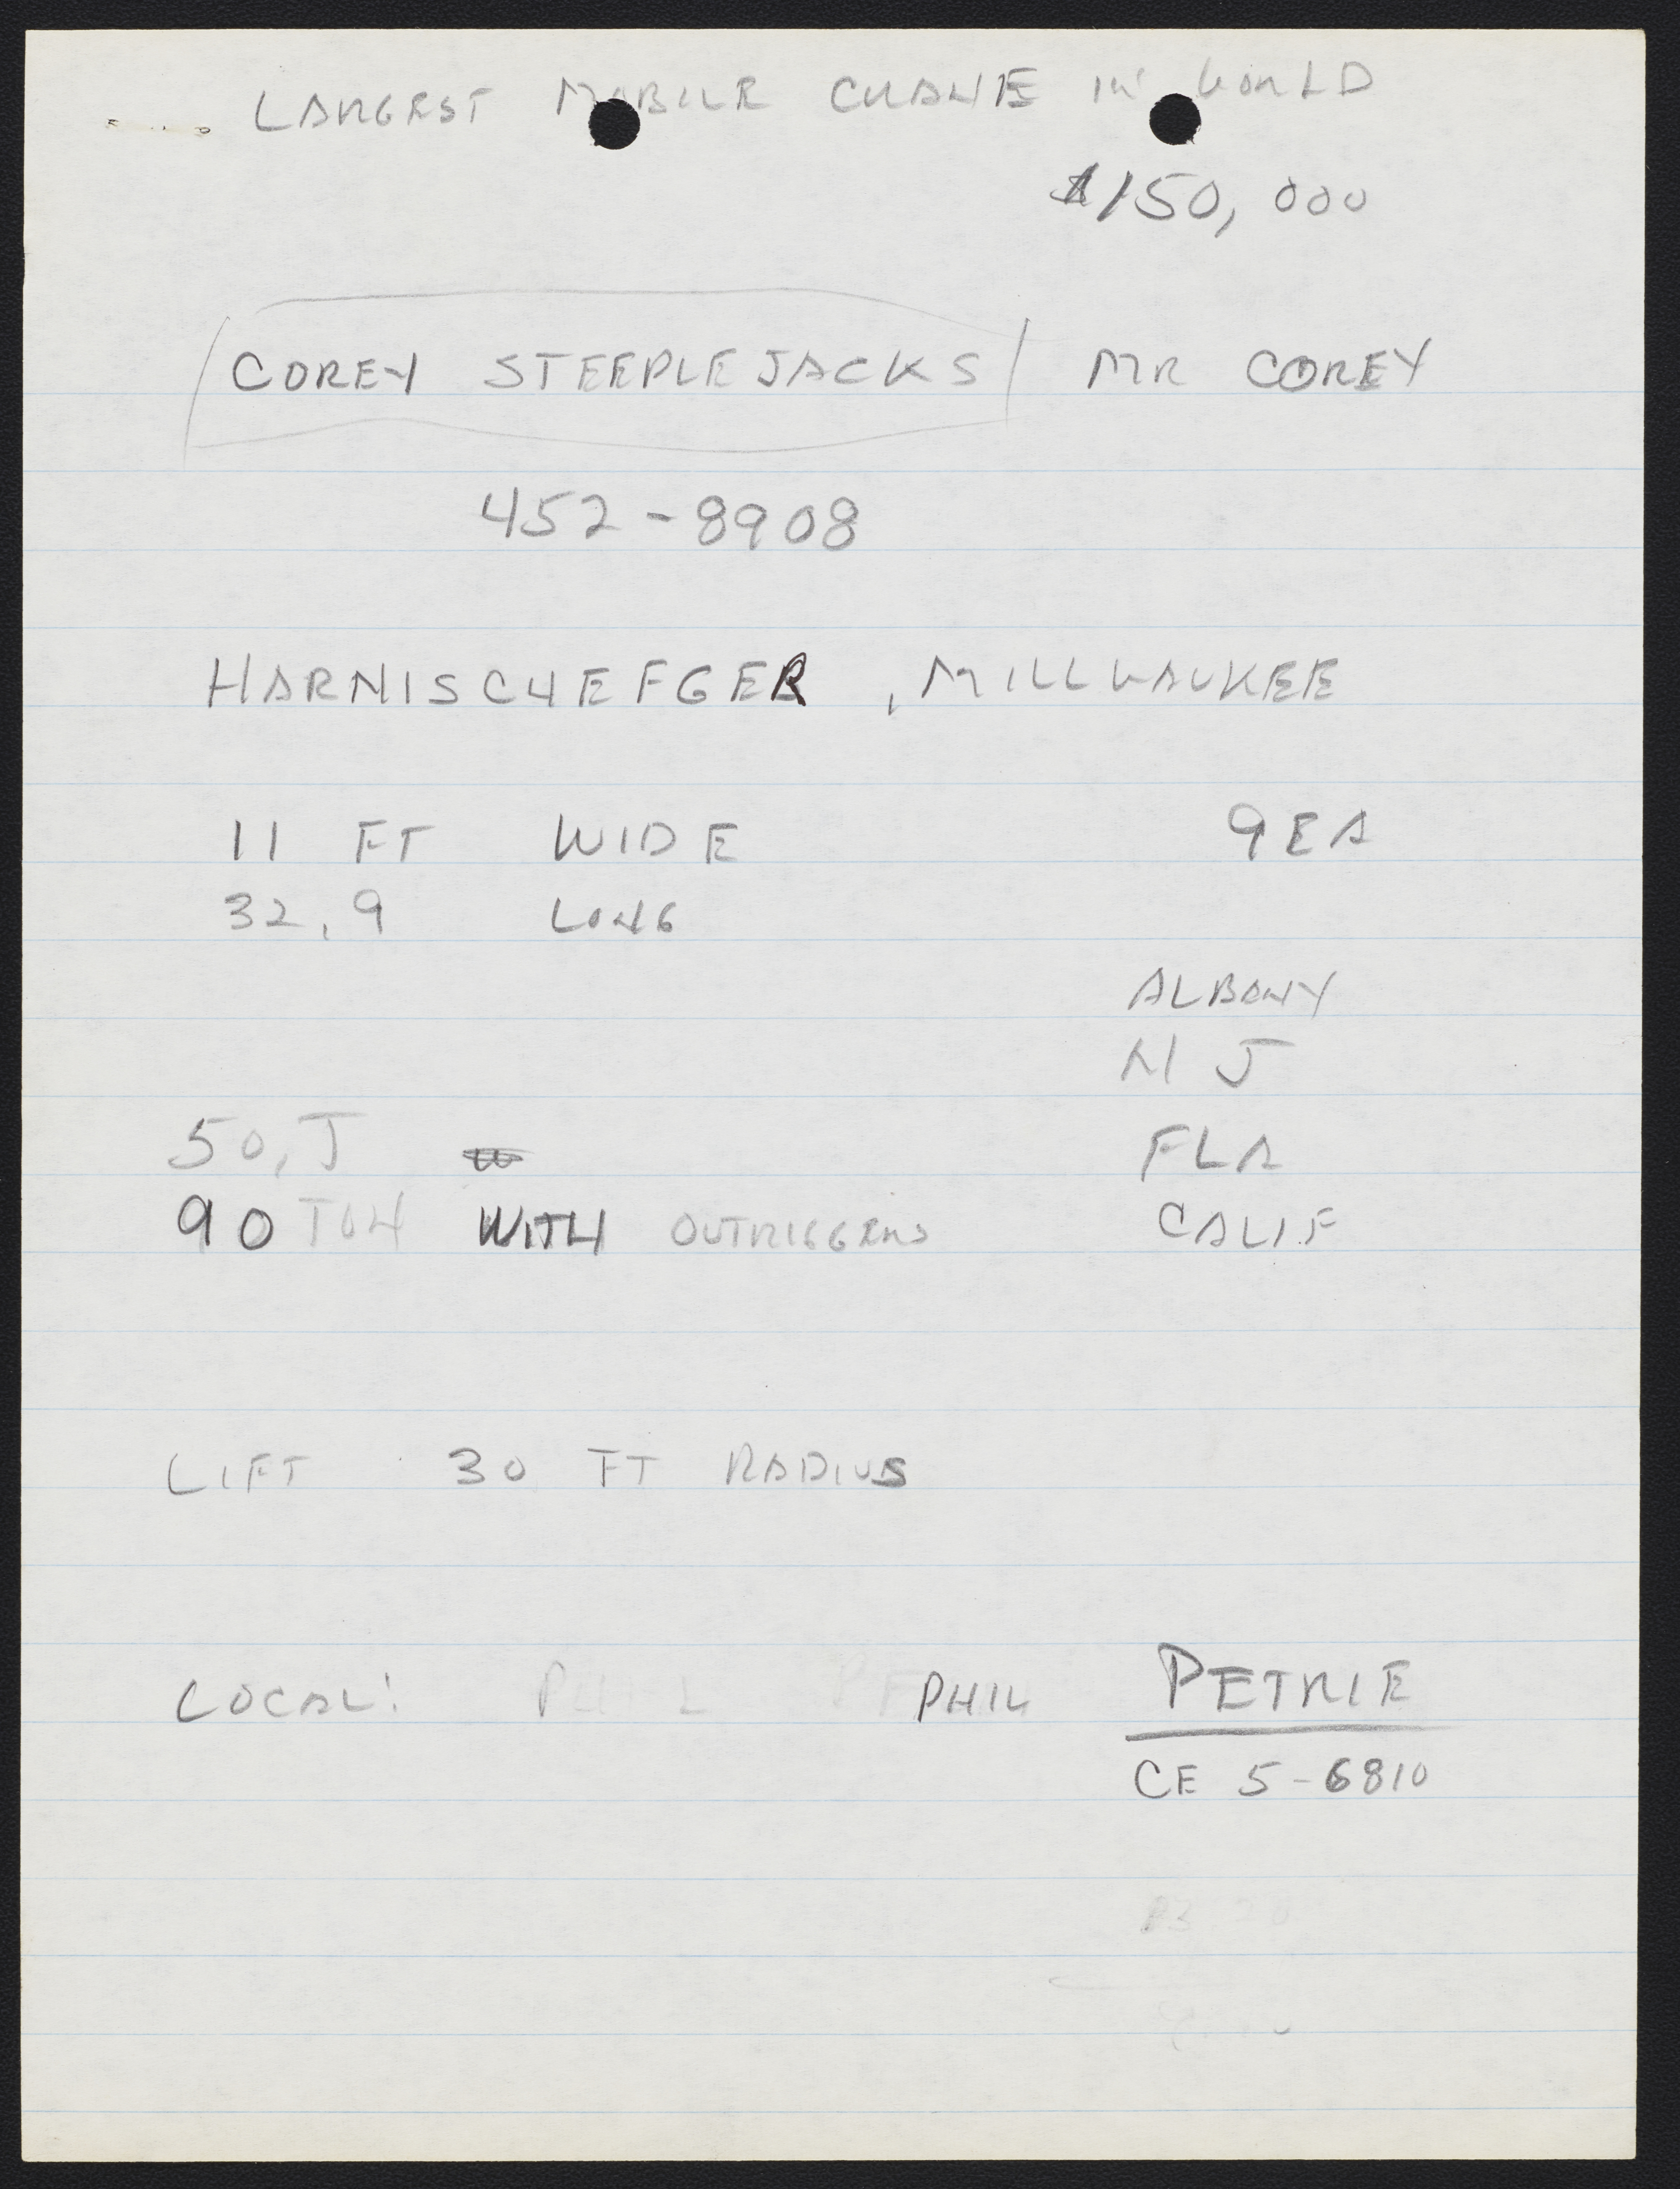 LARGEST MOBILE CRANE IN WORLD
$150,000
COREY STEEPLEJACKS MR COREY
452-8908
HARNISCHEFGER, MILLWAUKEE
11 FT WIDE 9 EA
32,9 LONG
ALBANY
N J
50,T FLA
90 TON WITH OUTRIGGERS CALIF
LIFT 30 FT RADIUS
LOCAL: PHIL PHIL PETRIE
CE 5-6810